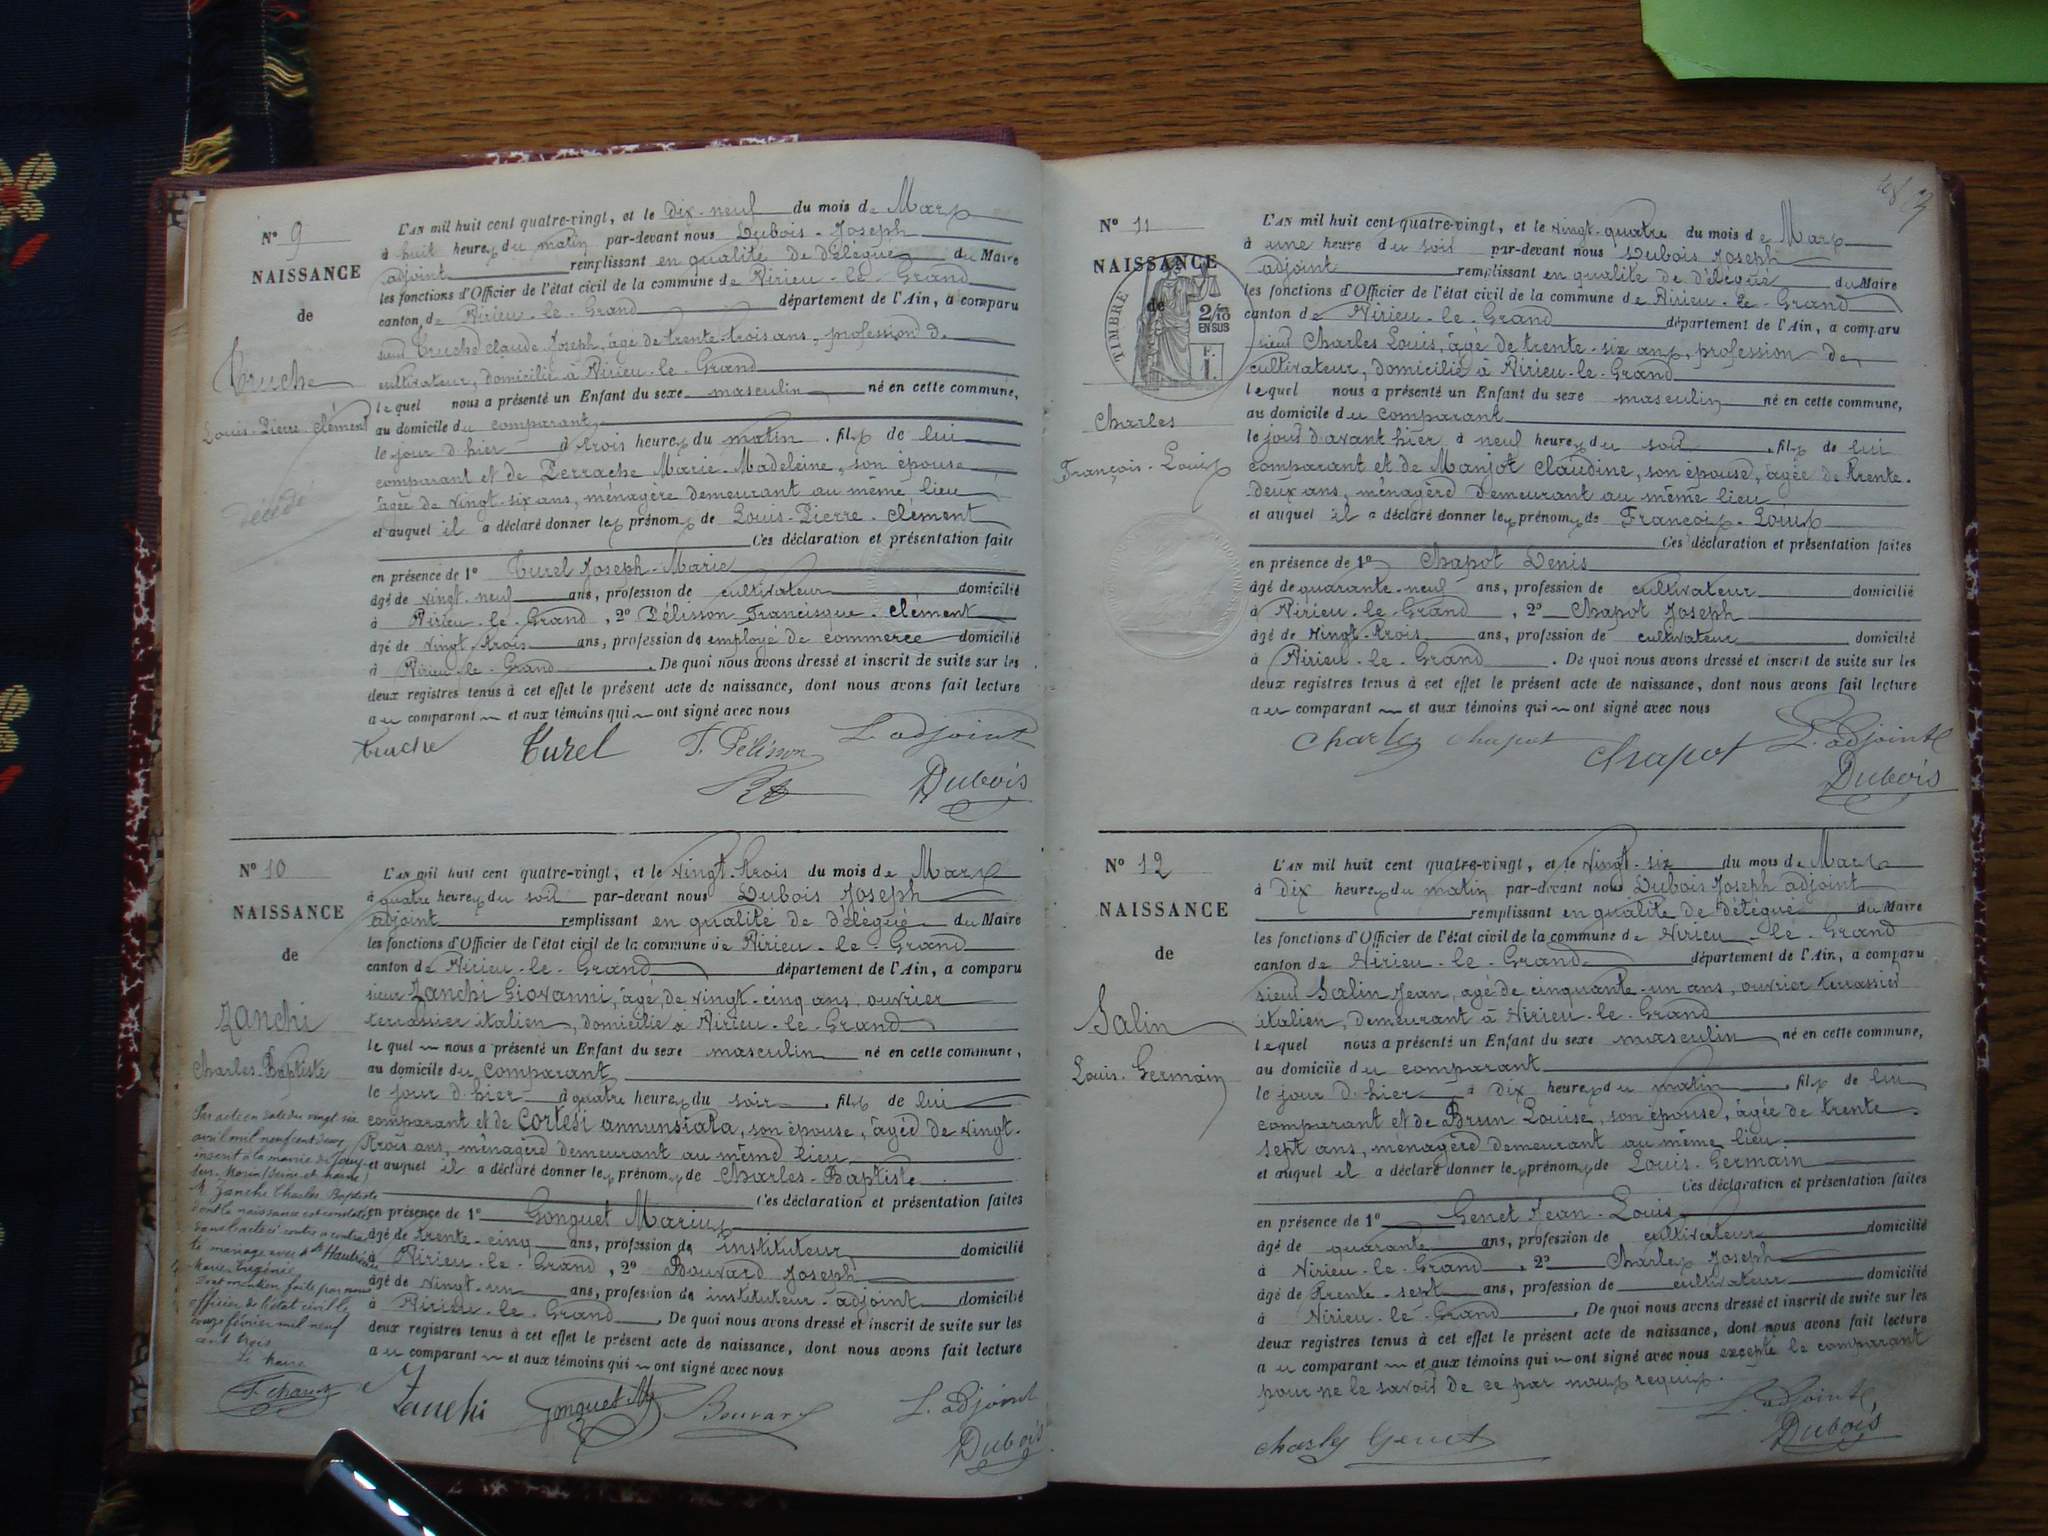 N° 9
NAISSANCE
de
Truche
Louis-Pierre-clément
décédé
L'AN mil huit cent quatre-vingt, et le dix-neuf du mois de Mars
à huit heures du matin par-devant nous Dubois Joseph
adjoint remplissant en qualité de délégué du Maire
les fonctions d'Officier de l'état civil de la commune de Virieu-le-Grand
canton de Virieu-le-Grand département de l'Ain, a comparu
sieur Truche claude Joseph, âgé de trente-trois ans, profession de
cultivateur, domicilié à Virieu-le-Grand
lequel nous a présenté un Enfant du sexe masculin né en cette commune,
au domicile du comparant,
le jour d'hier à trois heures du matin, fils de lui
comparant et de Perrache Marie-Madeleine, son épouse
âgée de vingt-six ans, ménagère demeurant au même lieu
et auquel il a déclaré donner les prénoms de Louis-Pierre-clément
Ces déclaration et présentation faites
en présence de 1° Turel Joseph-Marie
âgé de vingt-neuf ans, profession de cultivateur domicilié
à Virieu-le-Grand, 2° Pélisson Francisque-clément
âgé de vingt-trois ans, profession de employé de commerce domicilié
à Virieu-le-Grand. De quoi nous avons dressé et inscrit de suite sur les
deux registres tenus à cet effet le présent acte de naissance, dont nous avons fait lecture
au comparant et aux témoins qui ont signé avec nous
truche Turel F. Pélisson L'adjoint
Dubois
N° 10
NAISSANCE
de
Zanchi
Charles-Baptiste
Par acte en date du vingt six
avril mil neuf cent deux
inscrit à la mairie de Jouy-
sur-Morin (Seine et Marne)
M Zanchi Charles Baptiste
dont la naissance est constatée
dans l'acte ci contre a contracté
le mariage avec Mlle Hautevier
Marie Eugénie
Dont mention faite par nous
officier de l'état civil le
onze février mil neuf
cent trois
Le Maire
L'AN mil huit cent quatre-vingt, et le vingt-trois du mois de Mars
à quatre heures du soir par-devant nous Dubois Joseph
adjoint remplissant en qualité de délégué du Maire
les fonctions d'Officier de l'état civil de la commune de Virieu-le-Grand
canton de Virieu-le-Grand département de l'Ain, a comparu
sieur Zanchi Giovanni, âgé de vingt-cinq ans, ouvrier
terrassier italien, domicilié à Virieu-le-Grand
lequel nous a présenté un Enfant du sexe masculin né en cette commune,
au domicile du comparant
le jour d'hier à quatre heures du soir, fils de lui
comparant et de Cortesi annunsiata, son épouse, âgée de vingt-
trois ans, ménagère demeurant au même lieu
et auquel il a déclaré donner les prénoms de Charles-Baptiste
Ces déclaration et présentation faites
en présence de 1° Gonguet Marius
âgé de trente-cinq ans, profession de instituteur domicilié
à Virieu-le-Grand, 2° Bouvard Joseph
âgé de vingt-un ans, profession de instituteur-adjoint domicilié
à Virieu-le-Grand. De quoi nous avons dressé et inscrit de suite sur les
deux registres tenus à cet effet le présent acte de naissance, dont nous avons fait lecture
au comparant et aux témoins qui ont signé avec nous
Zanchi Gonguet M Bouvard L'adjoint
Dubois
48
N° 11
NAISSANCE
de
TIMBRE
2/10
EN SUS
Charles
François-Louis
L'AN mil huit cent quatre-vingt, et le vingt-quatre du mois de Mars
à une heure du soir par-devant nous Dubois Joseph
adjoint remplissant en qualité de délégué du Maire
les fonctions d'Officier de l'état civil de la commune de Virieu-le-Grand
canton de Virieu-le-Grand département de l'Ain, a comparu
sieur Charles Louis, âgé de trente-six ans, profession de
cultivateur, domicilié à Virieu-le-Grand
lequel nous a présenté un Enfant du sexe masculin né en cette commune,
au domicile du comparant
le jour d'avant hier à neuf heures du soir, fils de lui
comparant et de Manjot Claudine, son épouse, âgée de trente-
deux ans, ménagère demeurant au même lieu
et auquel il a déclaré donner les prénoms de François-Louis
Ces déclaration et présentation faites
en présence de 1° Chapot Denis
âgé de quarante-neuf ans, profession de cultivateur domicilié
à Virieu-le-Grand, 2° Chapot Joseph
âgé de vingt-trois ans, profession de cultivateur domicilié
à Virieu-le-Grand. De quoi nous avons dressé et inscrit de suite sur les
deux registres tenus à cet effet le présent acte de naissance, dont nous avons fait lecture
au comparant et aux témoins qui ont signé avec nous
Charles Chapot Chapot L'adjoint
Dubois
N° 12
NAISSANCE
de
Salin
Louis-Germain
L'AN mil huit cent quatre-vingt, et le vingt-six du mois de Mars
à dix heures du matin par-devant nous Dubois Joseph adjoint
remplissant en qualité de délégué du Maire
les fonctions d'Officier de l'état civil de la commune de Virieu-le-Grand
canton de Virieu-le-Grand département de l'Ain, a comparu
sieur Salin Jean, âgé de cinquante-un ans, ouvrier terrassier
italien, demeurant à Virieu-le-Grand
lequel nous a présenté un Enfant du sexe masculin, né en cette commune,
au domicile du comparant
le jour d'hier à dix heures du matin, fils de lui
comparant et de Brun Louise, son épouse, âgée de trente-
sept ans, ménagère demeurant au même lieu
et auquel il a déclaré donner les prénoms de Louis-Germain
Ces déclaration et présentation faites
en présence de 1° Genet Jean-Louis
âgé de quarante ans, profession de cultivateur domicilié
à Virieu-le-Grand, 2° Charles Joseph
âgé de trente-sept ans, profession de cultivateur domicilié
à Virieu-le-Grand. De quoi nous avons dressé et inscrit de suite sur les
deux registres tenus à cet effet le présent acte de naissance, dont nous avons fait lecture
au comparant et aux témoins qui ont signé avec nous excepté le comparant
pour ne le savoir de ce par nous requis.
L'adjoint
charles Genet Dubois